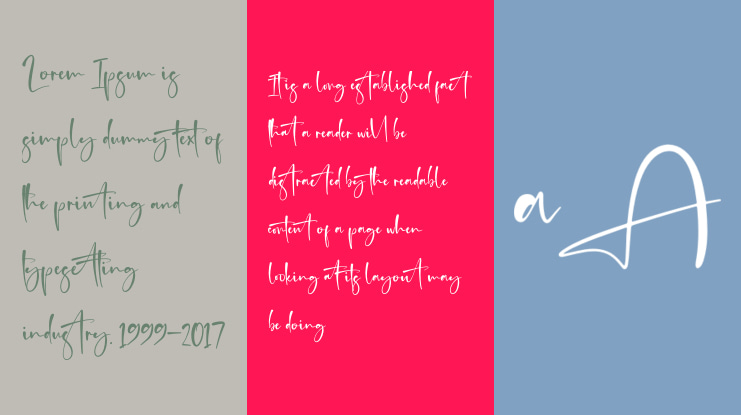 Lorem Ipsum is
simply dummy text of
the printing and
typesetting
industry. 1999–2017
It is a long established fact
that a reader will be
distracted by the readable
content of a page when
looking at its layout may
be doing
a A